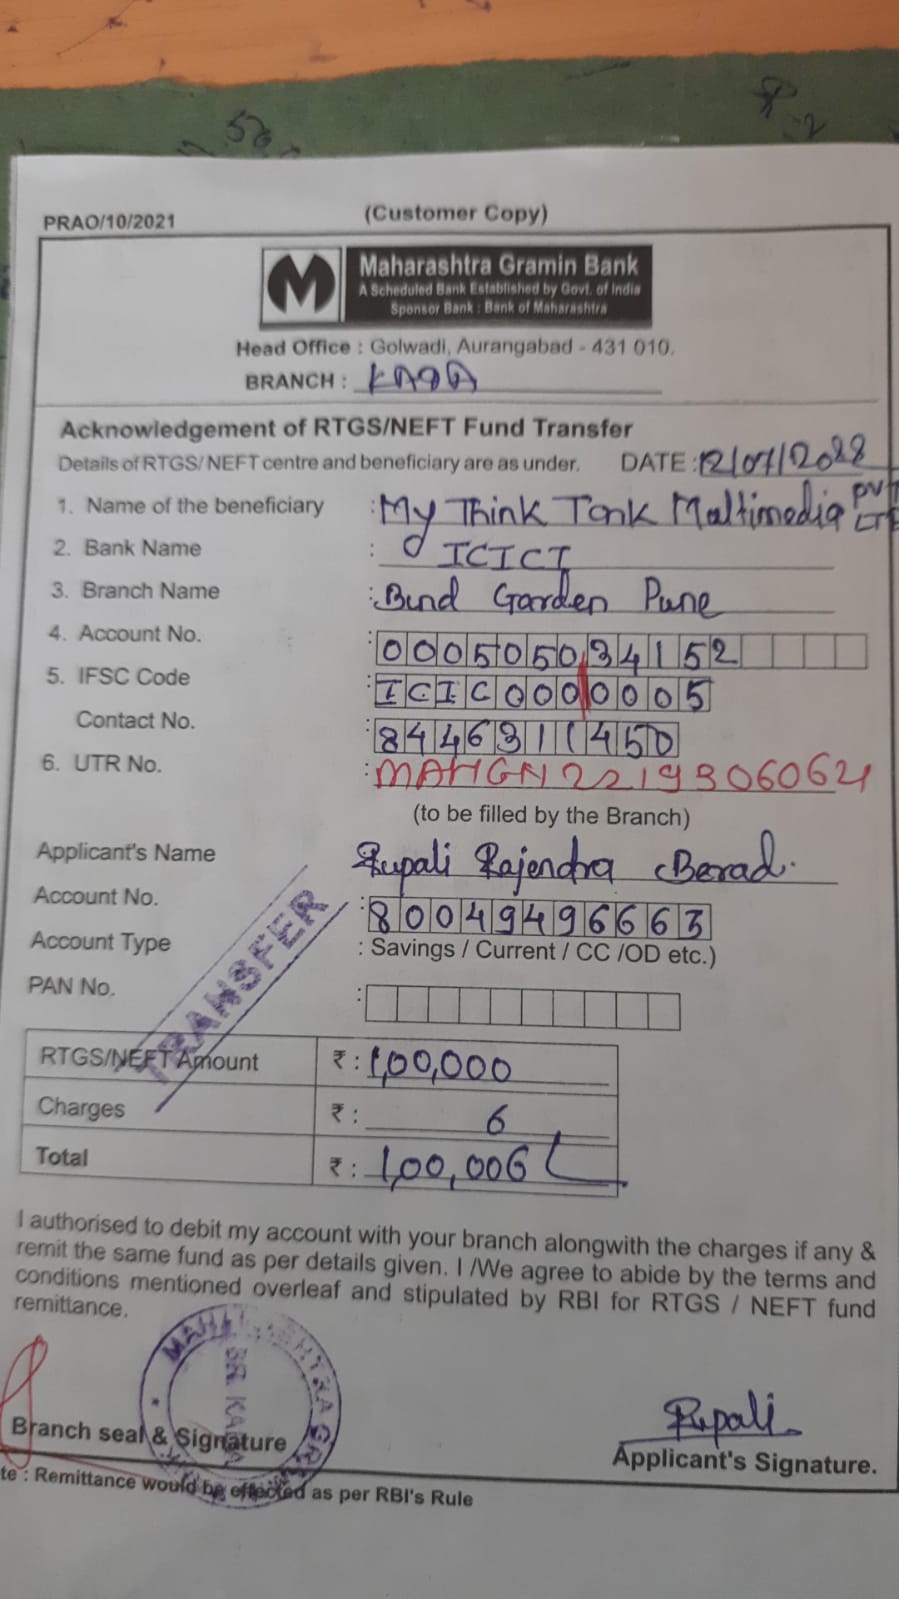 PRAO/10/2021
(Customer Copy)
M
Maharashtra Gramin Bank
A Scheduled Bank Established by Govt. of India
Sponsor Bank : Bank of Maharashtra
Head Office : Golwadi, Aurangabad - 431 010.
BRANCH : KADA
Acknowledgement of RTGS/NEFT Fund Transfer
Details of RTGS/ NEFT centre and beneficiary are as under. DATE : 12/07/2022
1. Name of the beneficiary : My Think Tank Maltimedia PVT LTD
2. Bank Name : ICICI
3. Branch Name : Bund Garden Pune
4. Account No. : 000505034152
5. IFSC Code : ICIC0000005
Contact No. : 8446311450
6. UTR No. : MAHGN22193060621
(to be filled by the Branch)
Applicant's Name Rupali Rajendra Berad.
Account No. : 80049496663
Account Type : Savings / Current / CC /OD etc.)
PAN No. :
TRANSFER
RTGS/NEFT Amount ₹ : 1,00,000
Charges ₹ : 6
Total ₹ : 1,00,006
I authorised to debit my account with your branch alongwith the charges if any &
remit the same fund as per details given. I /We agree to abide by the terms and
conditions mentioned overleaf and stipulated by RBI for RTGS / NEFT fund
remittance.
BR. KADA
Rupali
Branch seal & Signature Applicant's Signature.
te : Remittance would be effected as per RBI's Rule